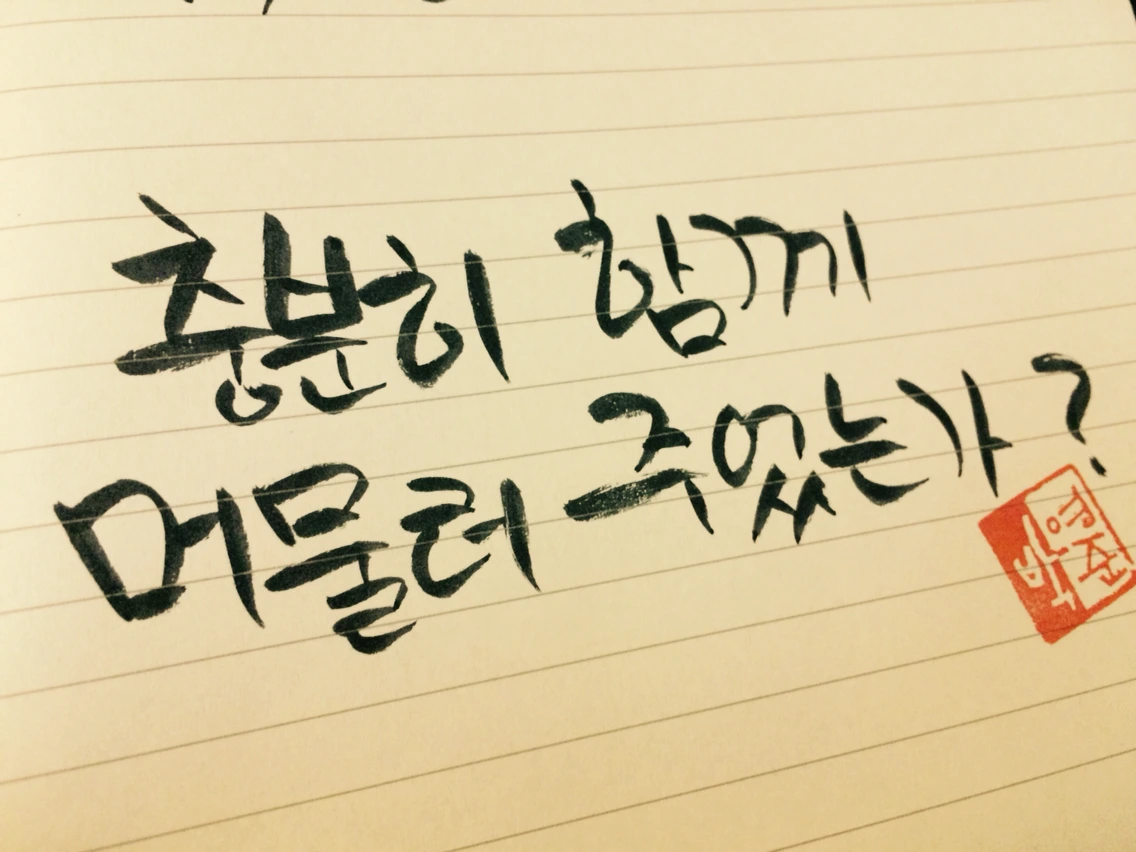 충분히 함께
머물러 주었는가?